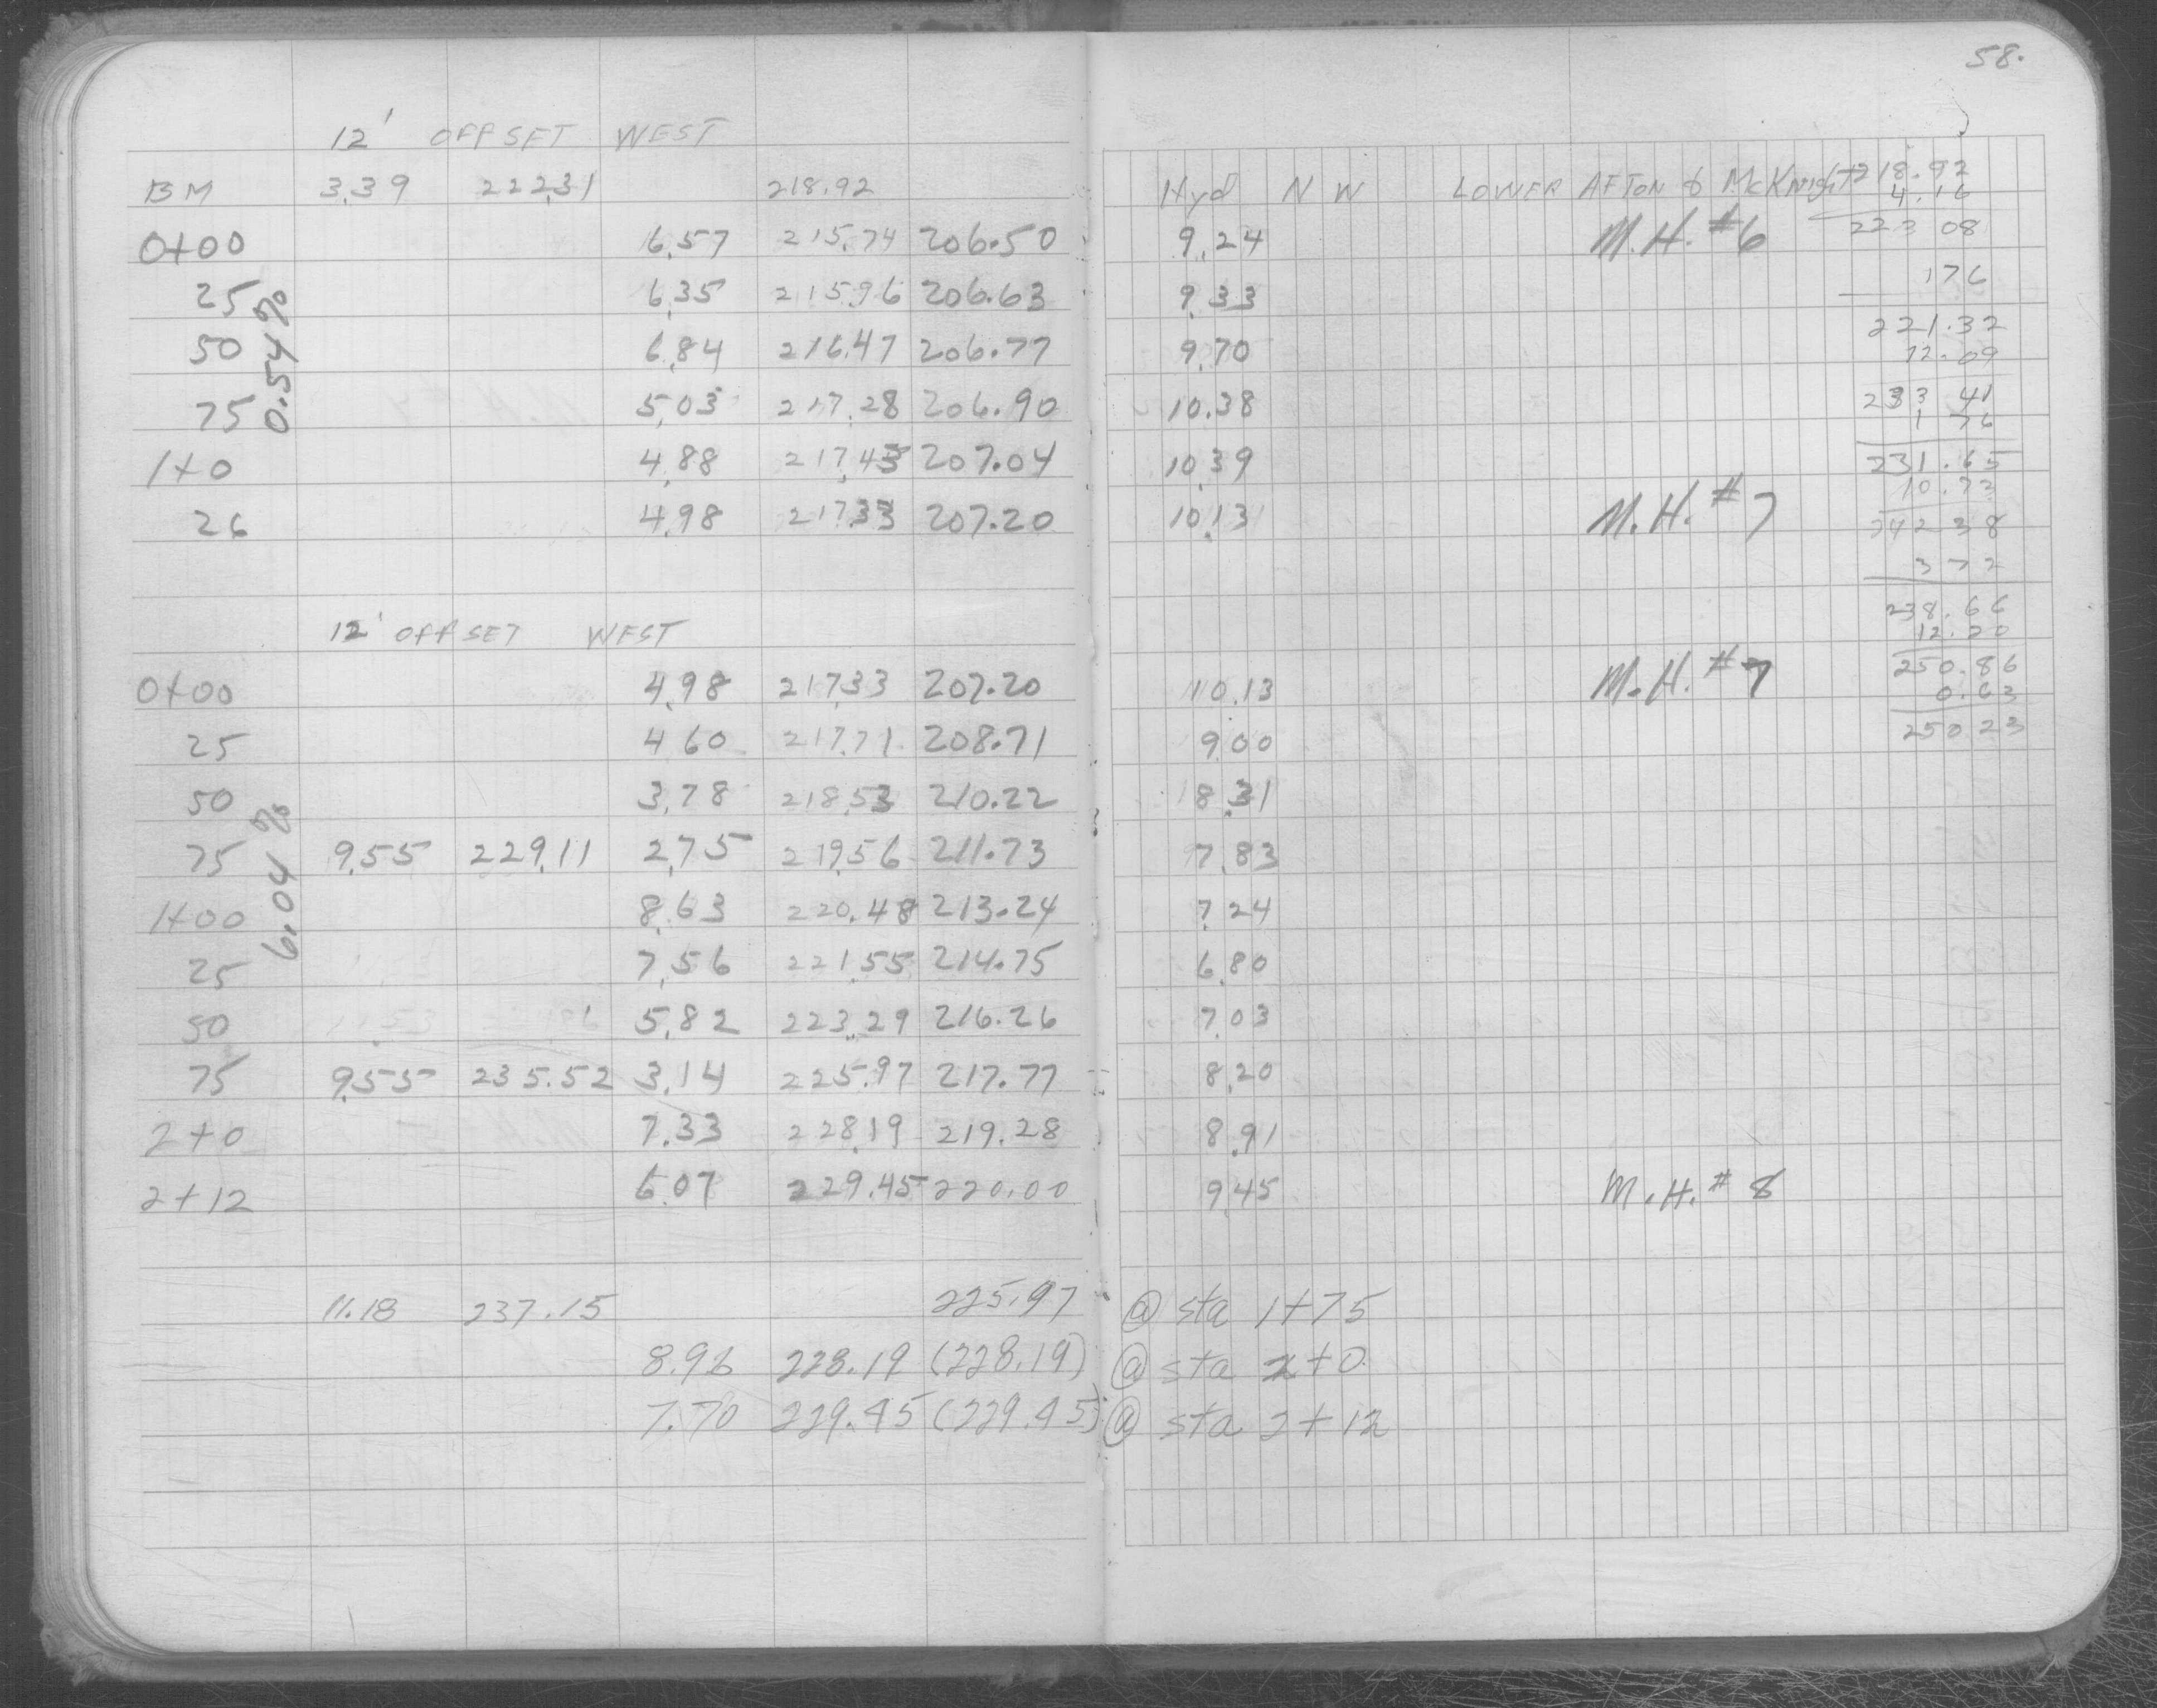 58.
12' OFFSET WEST
BM 3.39 222.31 218.92 Hyd N W LOWER AFTON & McKnight 218.92
4.16
0+00 6.57 215.74 206.50 9.24 M.H. #6 223 08
25 6.35 215.96 206.63 9.33 176
50 6.84 216.47 206.77 9.70 221.32
12.09
75 5.03 217.28 206.90 10.38 233 41
1 76
1+0 4.88 217.43 207.04 10.39 231.65
10.73
26 4.98 217.33 207.20 10.13 M.H. #7 242 38
3 72
0.54%
12' OFFSET WEST 238.66
12.20
0+00 4.98 217.33 207.20 10.13 M.H. #7 250.86
0.63
25 4.60 217.71 208.71 9.00 250 23
50 3.78 218.53 210.22 8.31
75 9.55 229.11 2.75 219.56 211.73 7.83
1+00 8.63 220.48 213.24 7.24
25 7.56 221.55 214.75 6.80
50 5.82 223.29 216.26 7.03
75 9.55 235.52 3.14 225.97 217.77 8.20
2+0 7.33 228.19 219.28 8.91
2+12 6.07 229.45 220.00 9.45 M.H. # 8
6.04%
11.18 237.15 225.97 @ sta 1+75
8.96 228.19 (228.19) @ sta 2+0
7.70 229.45 (229.45) @ sta 2+12